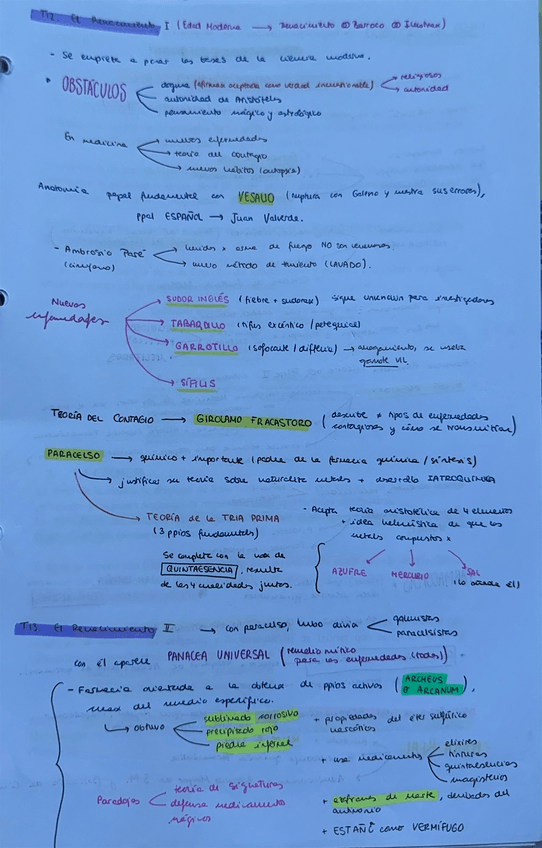 T12. El Renacimiento I (Edad Moderna → Renacimiento Barroco Ilustrac
- Se empieza a poner las bases de la ciencia moderna.
OBSTÁCULOS
dogma (afirmac aceptada como verdad incuestionable)
religiosos
autoridad
autoridad de Aristóteles
pensamiento mágico y astrológico
En medicina
nuevas enfermedades
teoría del contagio
nuevos hábitos (autopsia)
Anatomía papel fundamental con VESALIO (ruptura con Galeno y muestra sus errores),
ppal ESPAÑOL → Juan Valverde.
- Ambrosio Paré
(cirujano)
heridas x arma de fuego NO son venenosas.
nuevo método de (LAVADO).
Nuevas
enfermedades
SUDOR INGLÉS (fiebre + sudorac) sigue para investigadores
TABARDILLO (tifus exantico / petequial)
GARROTILLO (sofocante / difteria) → ahogamiento, se usaba
garrote vil.
SÍFILIS
TEORÍA DEL CONTAGIO → GIROLAMO FRACASTORO (describe x tipos de enfermedades
contagiosas y cómo se transmitían)
PARACELSO → químico + importante (padre de la farmacia química / síntesis)
justificar su teoría sobre naturaleza metales + desarrollo IATROQUÍMICA
TEORÍA de la TRIA PRIMA
(3 ppios fundamentales)
Se completa con la de
QUINTAESENCIA, resulta
de las 4 cualidades juntas.
- Acepta teoría aristotélica de 4 elementos
+ idea helenística de que los
metales compuestos x
AZUFRE MERCURIO SAL
(la añade él)
T13. El Renacimiento II → con paracelso, hubo divia
galenistas
paracelsistas
con él aparece PANACEA UNIVERSAL (remedio mítico
para las enfermedades (todas))
- Farmacia orientada a la obtenc de ppios activos (ARCHEUS
o ARCANUM)
max del remedio específico.
obtuvo
sublimado corrosivo
precipitado rojo
piedra infernal
+ propiedades del éter sulfúrico
narcótico
+ use medicamentos
elixires
tinturas
quintaesencias
magisterios
Paradojas
teoría de signaturas
defensa medicamentos
mágicos
+ de marte, derivados del
antimonio
+ ESTAÑO como VERMÍFUGO